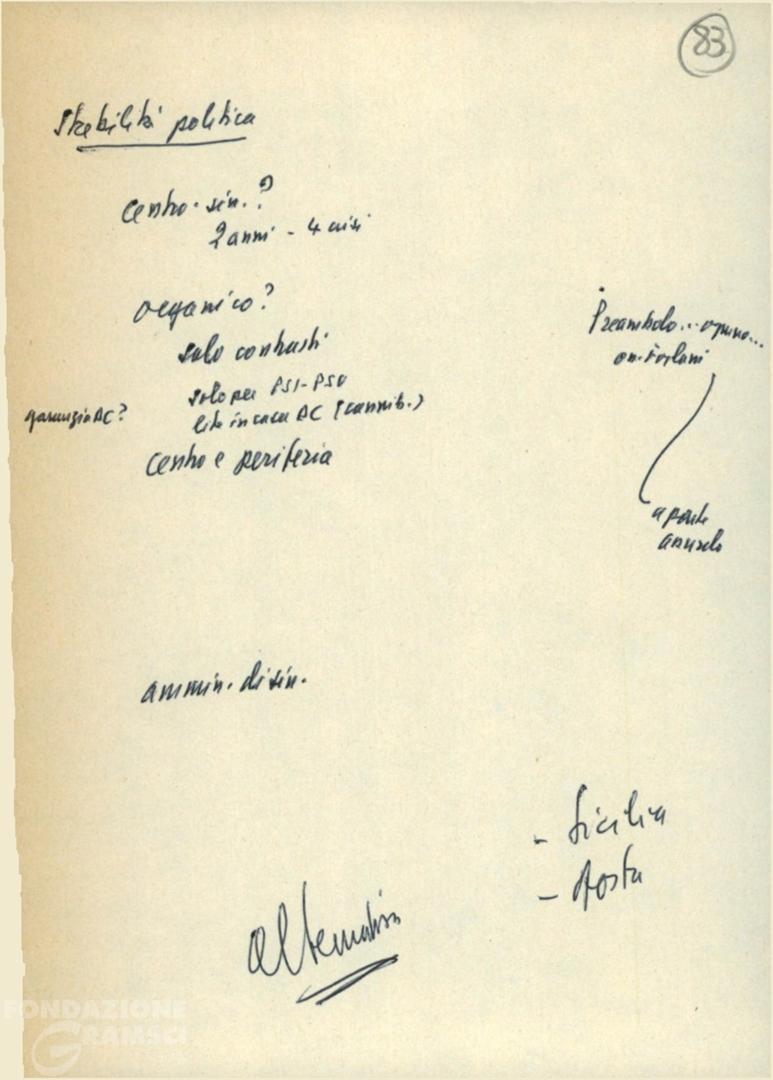 83
Stabilità politica
centro-sin.?
2 anni - 4 crisi
organico?
solo contrasti
solo per PSI-PSU
garanzia DC?
lite in casa DC (cannib.)
centro e periferia
Preambolo... oppure...
on. Forlani
a parte
ammin. di sin.
- Sicilia
- Aosta
alternativa
FONDAZIONE
GRAMSCI